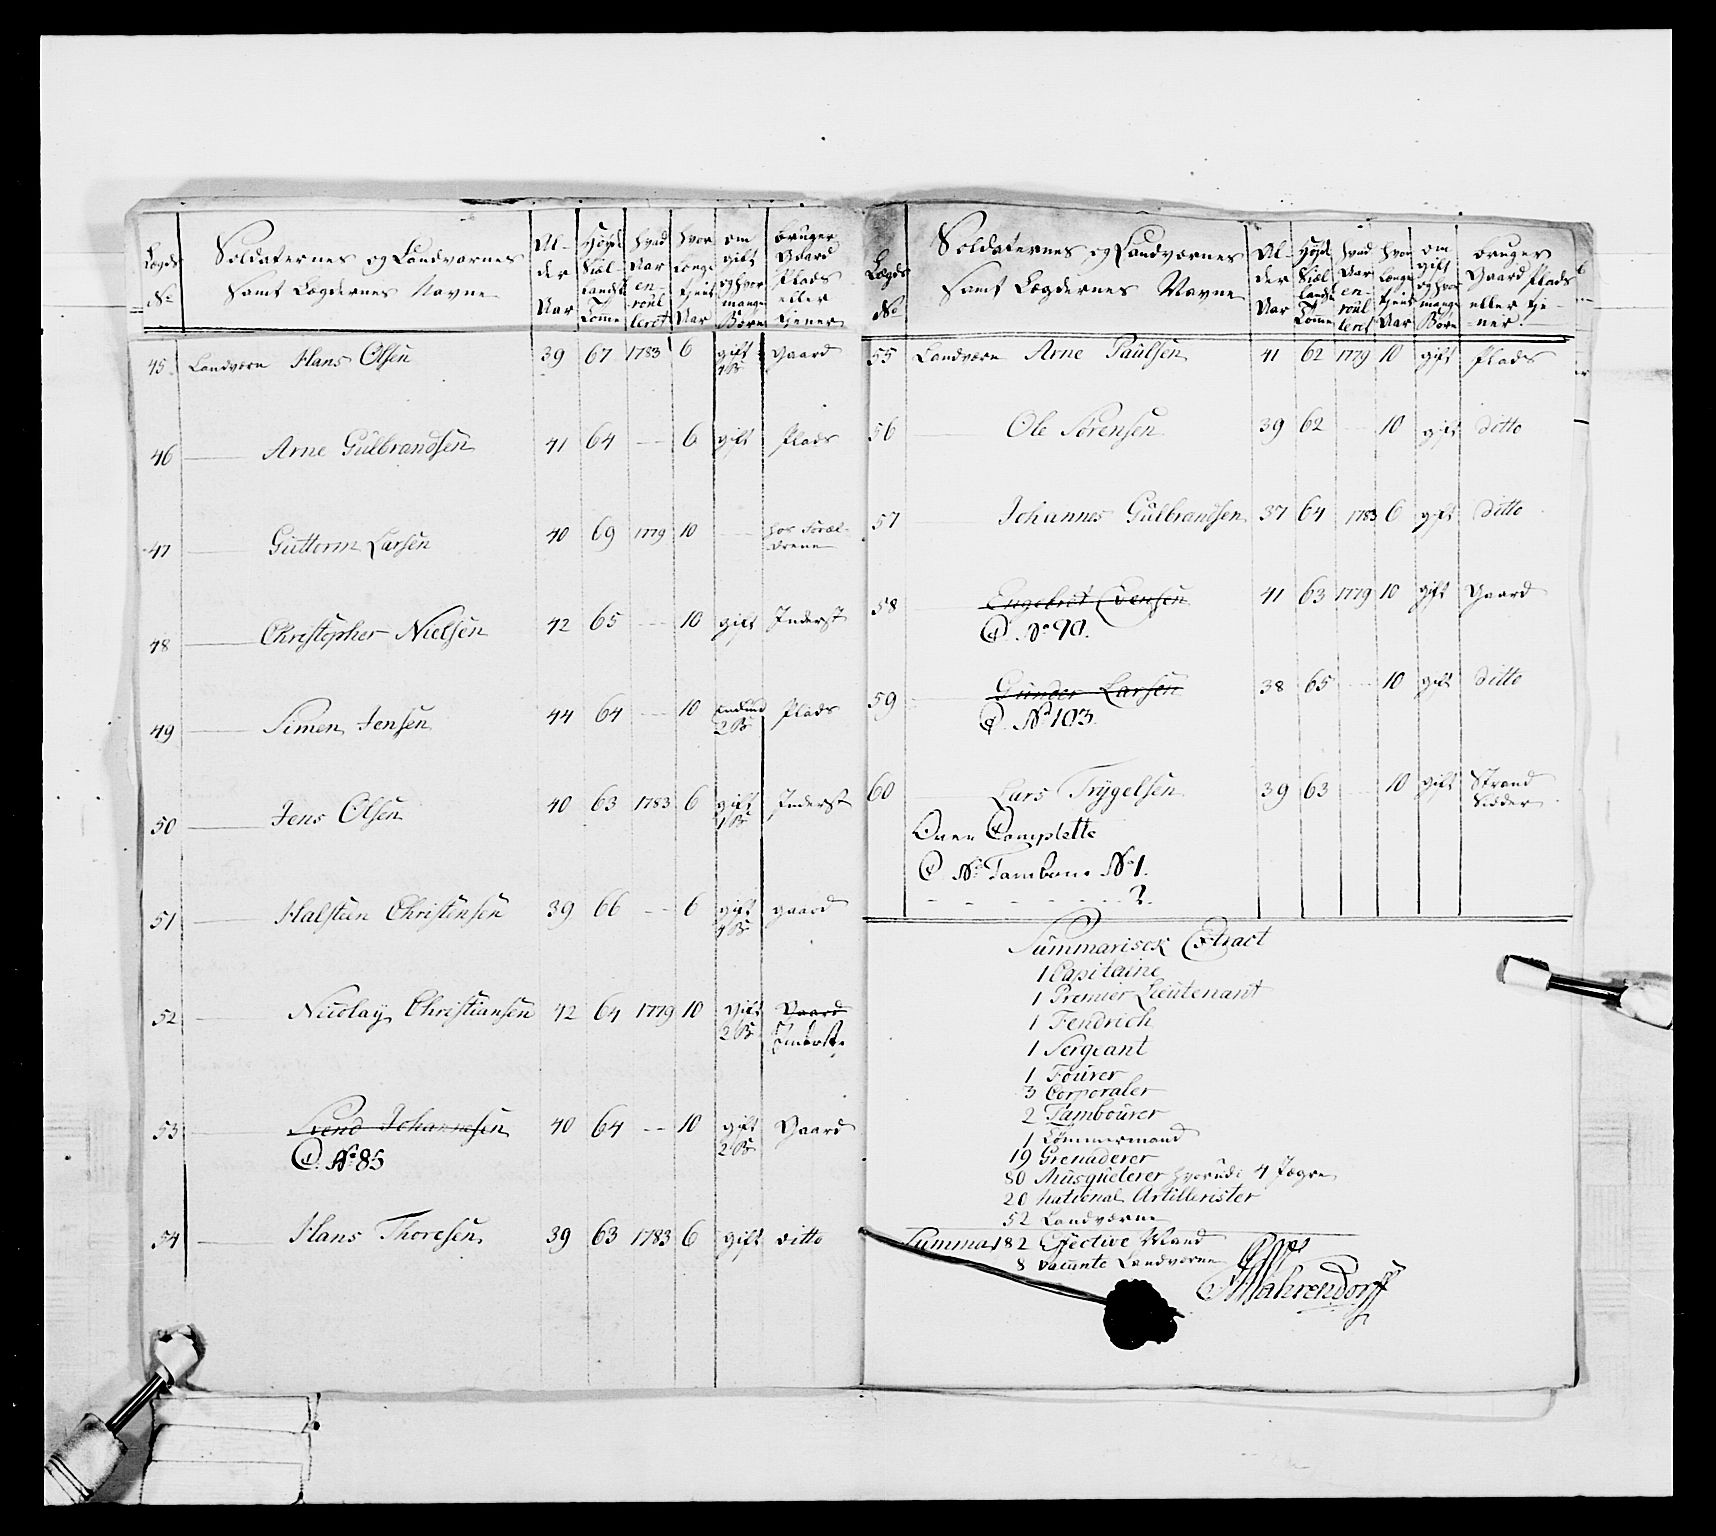 Lægds No
Soldaternes og Landværnes samt Lægdernes Navne
Al-der Aar
Høyde Siæl-landsk Tomme
hvad Aar en-roul-leret
hvor længe tjent Aar
om gift og hvor mange Børn
bruger Gaard Plads eller tjener
45 Landværn Hans Olsen 39 67 1783 6 gift 4 B Gaard
46 — Arne Gulbrandsen 41 64 — 6 gift Plads
47 — Guttorm Larsen 40 69 1779 10 — hos Foræl-drene
48 — Christopher Nielsen 42 65 — 10 gift Inderst
49 — Simen Jensen 44 64 — 10 2 B Plads
50 — Jens Olsen 40 63 1783 6 gift 1 B Inderst
51 — Halsteen Christensen 39 66 — 6 gift 4 B gaard
52 — Nicolay Christiansen 42 64 1779 10 gift 2 B Gaard Inderste
53 — Svend Johannesen 40 64 — 10 gift 2 B Gaard
C. No 85
54 Hans Thoresen 39 63 1783 6 gift ditto
Lægds No
Soldaternes og Landværnes samt Lægdernes Navne
Al-der Aar
Høyde Siæl-landsk Tomme
hvad Aar en-roul-leret
hvor længe tjent Aar
om gift og hvor mange Børn
bruger Gaard Plads eller tje-ner
55 Landværn Arne Paulsen 41 62 1779 10 gift Plads
56 — Ole Sørensen 39 62 — 10 gift ditto
57 — Johannes Gulbrandsen 37 64 1783 6 gift ditto
58 — Engebret Evensen 41 63 1779 10 gift Gaard
C. No 90.
59 — Gunder Larsen 38 65 — 10 gift ditto
C. No 103.
60 — Lars Trygelsen 39 63 — 10 gift Strand Sidder
Over Complette
C. No Tambour No 1.
- - - - - - 2.
Summarisck Extract
1 Capitaine
1 Premier Lieutenant
1 Fendrich
1 Sergeant
1 Fourer
3 Corporaler
2 Tambourer
1 Tømmermand
19 Grenaderer
80 Musqueterer hvorudi 4 Jægre
20 National Artillerister
52 Landværne
Summa 182 Effective Mand
8 vacante Landværne
Wahrendorff